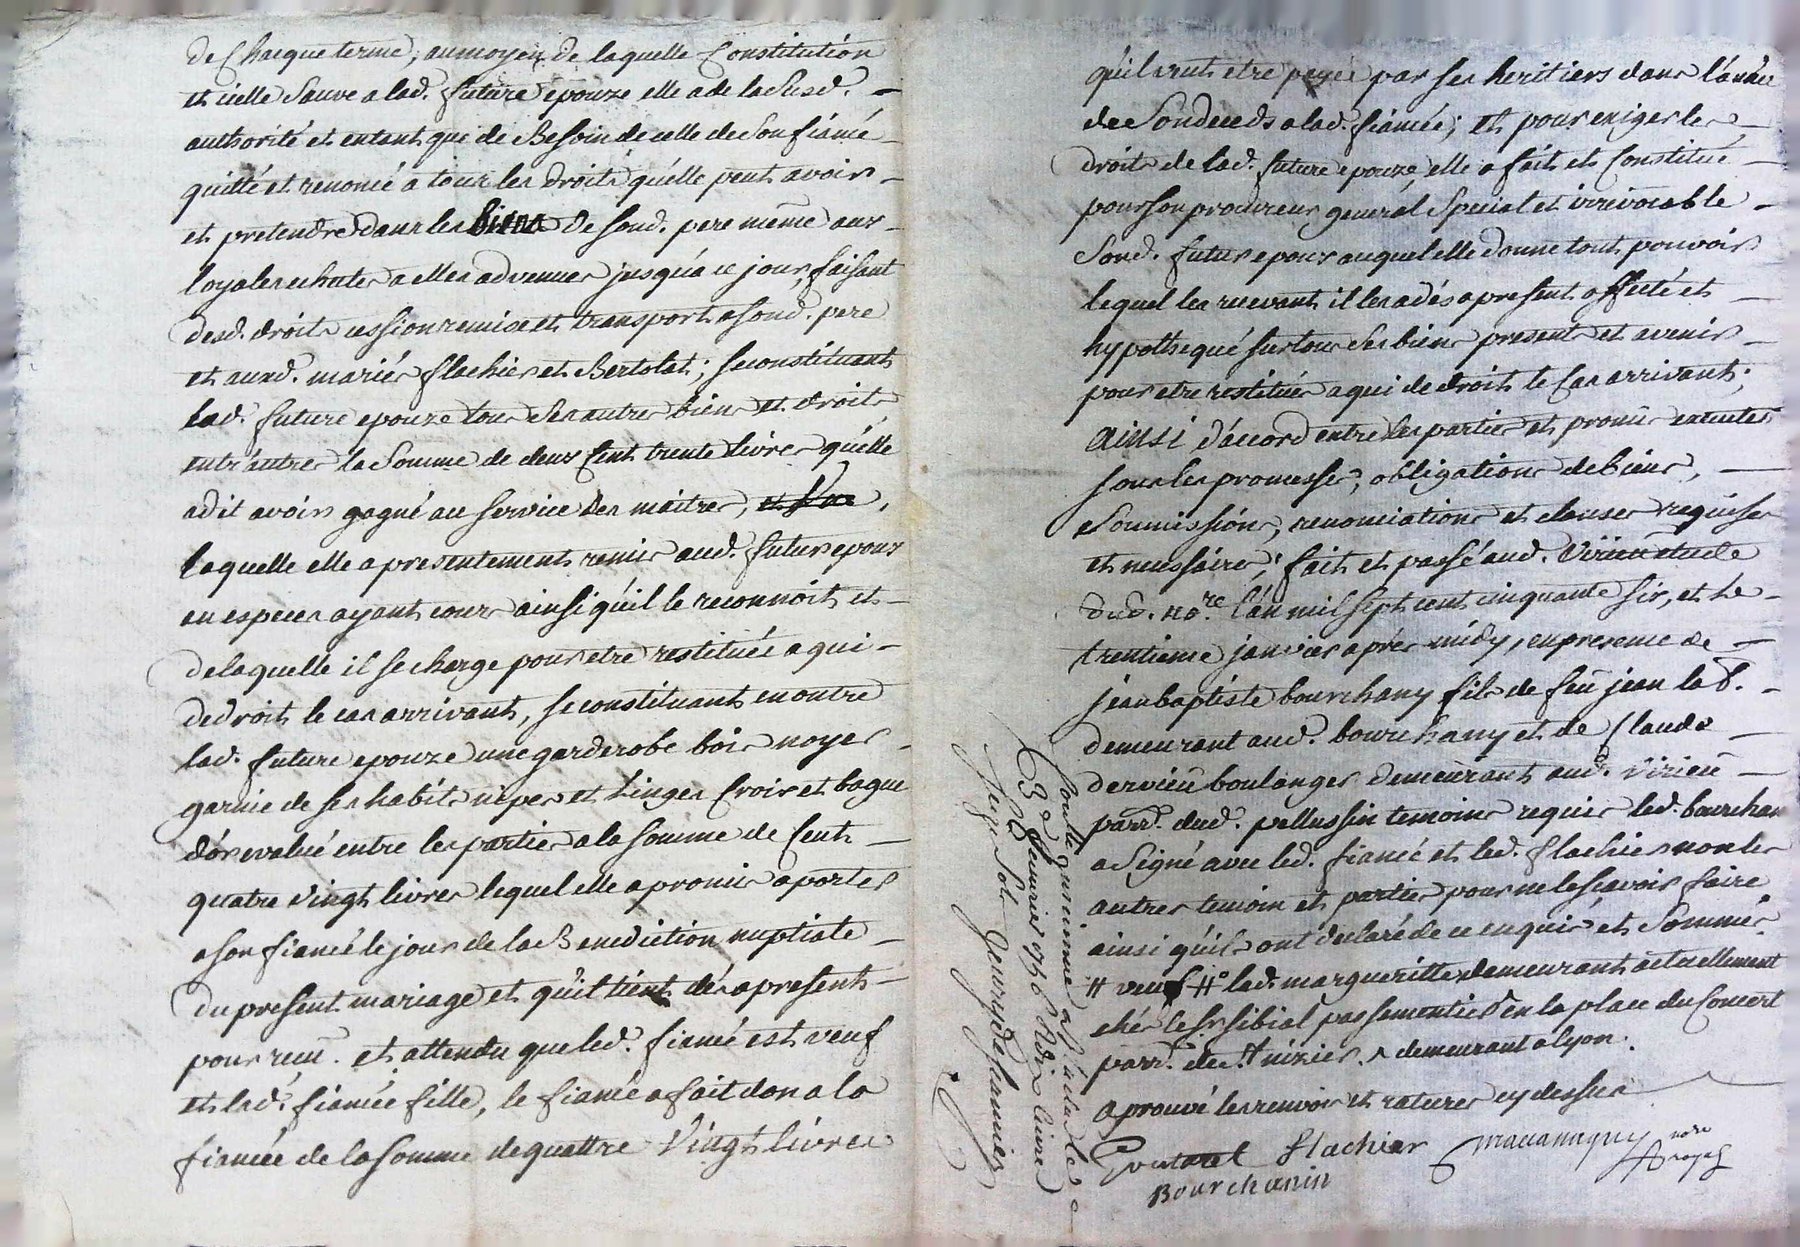 de Chacque terme, aumoyen de laquelle Constitution
et icelle Sauve a lad. future epouze elle a de la Susd.
authorité et entant que de Besoin de celle de Son fiancé
quitté et renoncé a tous les droits qu'elle peut avoir
et pretendre dans les biens de sond. pere même aux
loyales echutes a elles advenues jusqu'a ce jour, faisant
desd. droits cession remise et transport a sond. pere
et auxd. mariés flachier et Bertolat; se constituant
lad. future epouze tous Ses autres biens et droits
entr'autres la Somme de deux Cent trente livres qu'elle
a dit avoir gagné au service des maitres,
laquelle elle a presentement remis aud. futur epoux
en especes ayant cour ainsi qu'il le reconnoit et
de laquelle il se charge pour etre restituée a qui
de droit le cas arrivant, se constituant en outre
lad. future epouze une garderobe bois noyer
garnie de ses habits nipes et linges Croix et bague
d'or evalué entre les parties a la somme de Cent
quatre vingt livres lequel elle a promis aporter
a son fiancé le jour de la Benediction nuptiale
du present mariage et qu'il tient dès apresent
pour reçu. et attendu que led. fiancé est veuf
et lad. fiancée fille, le fiancé a fait don a la
fiancée de la somme de quattre Vingt livres
qu'il veut etre payée par ses heritiers dans l'année
de Son deceds a lad. fiancée; et pour exiger les
droits de lad. future epouze elle a fait et Constitué
pour son procureur general Special et irrévocable
Sond. futur epoux auquel elle donne tout pouvoir
lequel les recevant il les a dés apresent affecté et
hypothequé sur tous Ses biens present et avenir
pour etre restitués a qui de droit le Cas arrivant;
ainsi d'accord entre les parties et promis executer
sous les promesses, obligations de biens,
Soumissions, renonciations et clauses requises
et necessaires; fait et passé aud. Virieu etude
dud. nore. l'an mil sept cent cinquante six, et le
trentieme janvier après midy, en presence de
jean baptiste bourchany fils de feu jean lab.
demeurant aud. bourchany et de Claude
dervieu boulanger demeurant aud. virieu
parr. dud. pellussin temoins requis led. bourchan
a Signé avec led. fiancé et led. flachier non les
autres temoin et parties pour ne le sçavoir faire
ainsi qu'ils ont declaré de ce enquis et Sommés
# veuf # lad. margueritte demeurant actuellement
chés le Sr sibial passementier en la place du Concert
parr. de St nizier. demeurant a lyon.
aprouvé les renvois et ratures cy dessus
Flachier
nore
royal
Bourchanin